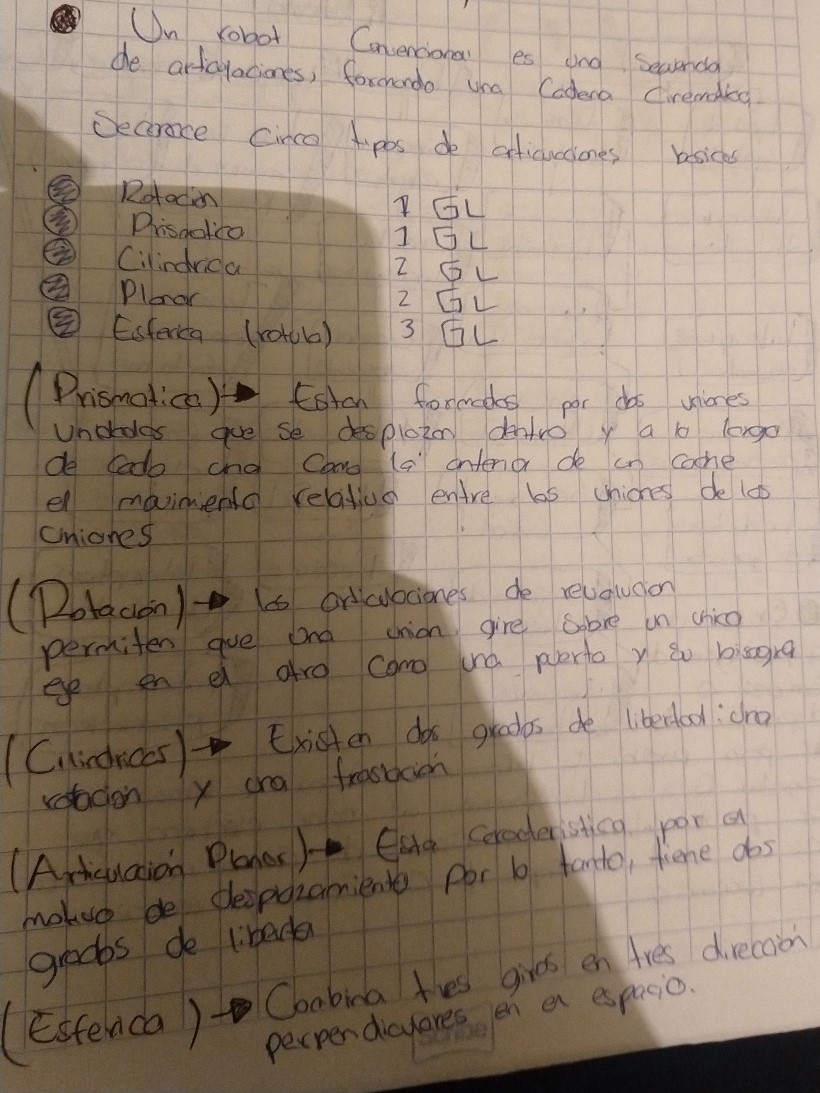 Un robot Convencional es una Secuencia
de articulaciones, formando una Cadena Cinematica
Seconoce Cinco tipos de articulaciones basicas
Rotación 1 GL
Prismatico 1 GL
Cilindrica 2 GL
Planar 2 GL
Esferica (rotula) 3 GL
(Prismatica) → Estan formados por dos uniones
que se desplazan dentro y a lo largo
de cada una Como la antena de un coche
el movimiento relativo entre las uniones de las
Uniones
(Rotación) → las articulaciones de revolucion
permiten que una union gire sobre un unico
eje en el otro Como una puerta y su bisagra
(Cilindricas) → Existen dos grados de libertad: una
rotacion y una traslación
(Articulación Planar) → Esta Caracteristica por el
motivo de desplazamiento por lo tanto, tiene dos
grados de
(Esferica) → Conbina tres giros en tres dirección
perpendiculares en el espacio.